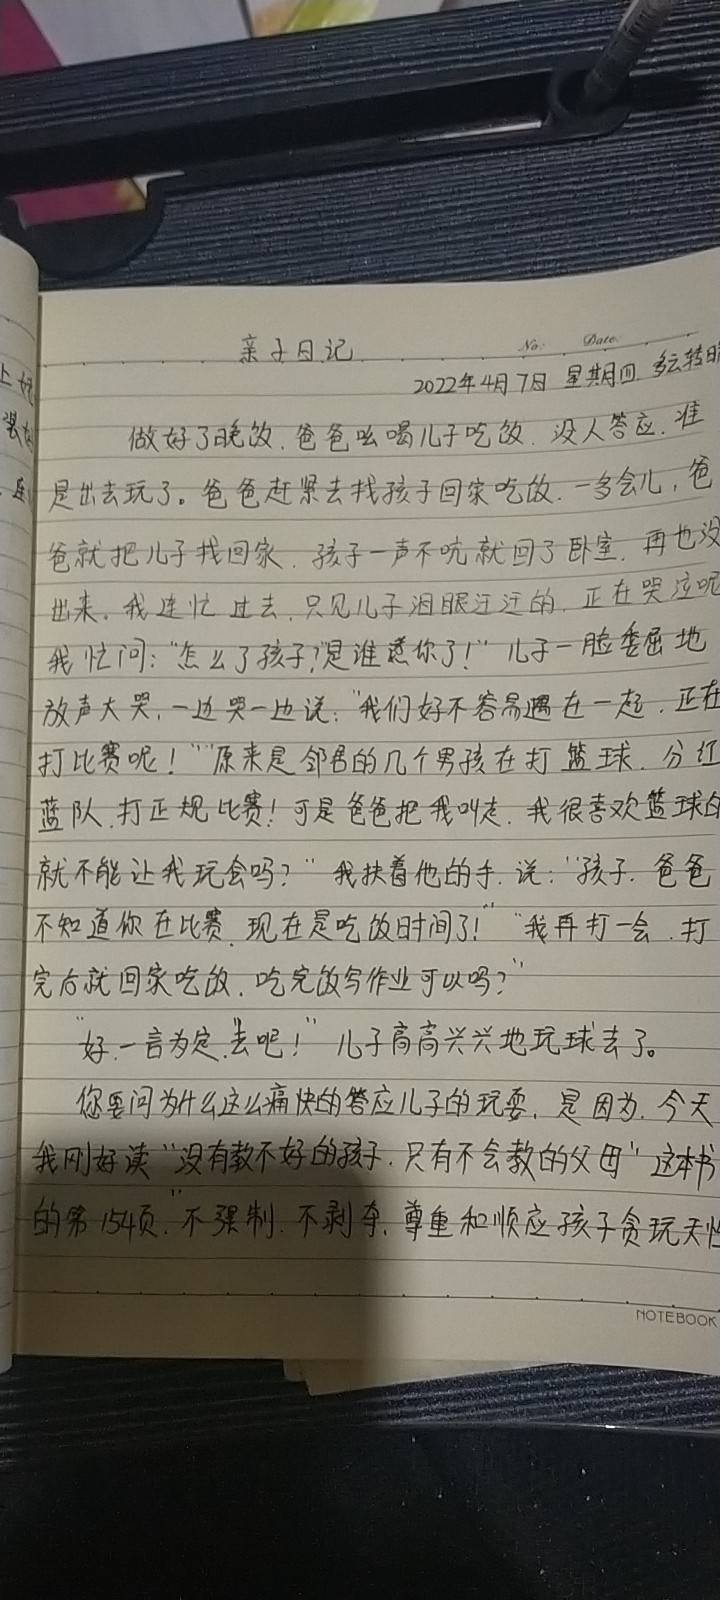 亲子日记
No: Date.
2022年4月7日 星期四 多云转晴
做好了晚饭，爸爸吆喝儿子吃饭，没人答应，准
是出去玩了。爸爸赶紧去找孩子回家吃饭，一多会儿，爸
爸就把儿子找回家，孩子一声不吭就回了卧室，再也没
出来。我连忙过去，只见儿子泪眼汪汪的，正在哭泣呢
我忙问："怎么了孩子？是谁惹你了！"儿子一脸委屈地
放声大哭，一边哭一边说："我们好不容易遇在一起，正在
打比赛呢！""原来是邻居的几个男孩在打篮球，分红
蓝队，打正规比赛！可是爸爸把我叫走，我很喜欢篮球的
就不能让我玩会吗？"我扶着他的手，说："孩子，爸爸
不知道你在比赛，现在是吃饭时间了！""我再打一会，打
完后就回家吃饭，吃完饭写作业可以吗？"
"好，一言为定，去吧！"儿子高高兴兴地玩球去了。
您要问为什么这么痛快的答应儿子的玩耍，是因为，今天
我刚好读"没有教不好的孩子，只有不会教的父母"这本书
的第154页，"不强制，不剥夺，尊重和顺应孩子贪玩天性
NOTEBOOK